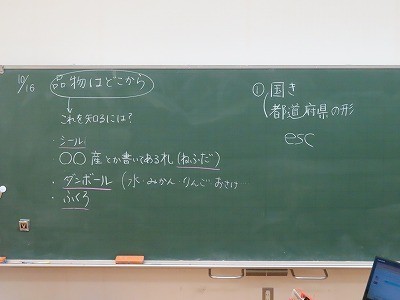 10/16
品物はどこから
これを知るには?
・シール
〇〇産とか書いてある札(ねふだ)
・ダンボール(水・みかん・りんご・おさけ…
・ふくろ
① 国き
都道府県の形
esc